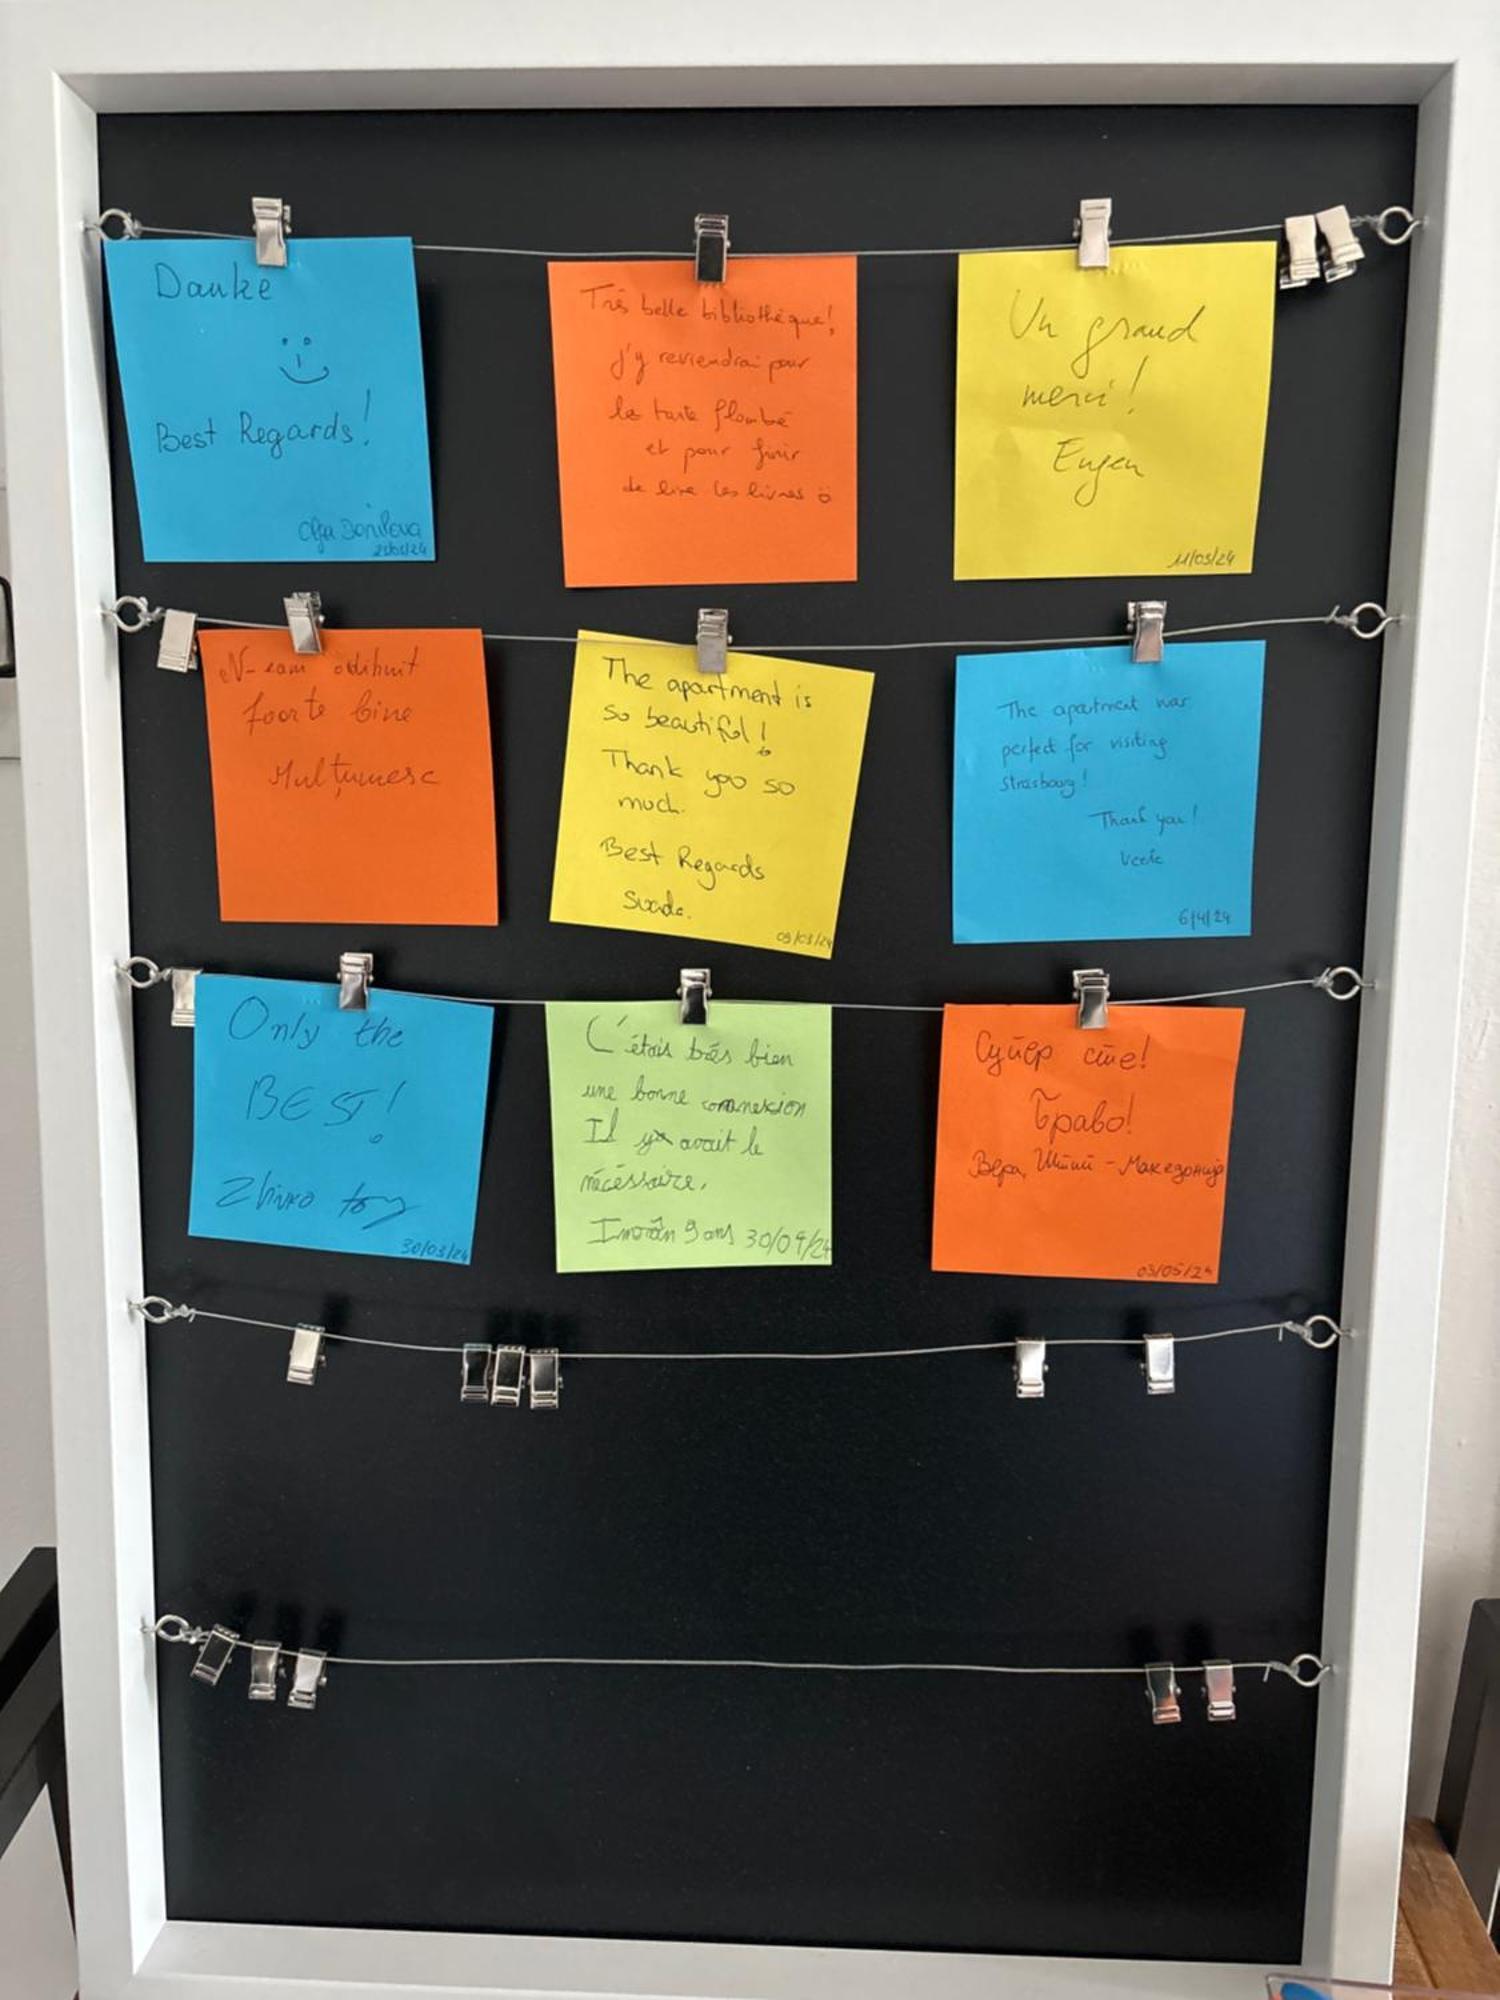 Danke
Best Regards!
Olga Danilova
Très belle bibliothèque!
j'y reviendrai pour
la tarte flambé
et pour finir
de lire les livres
Un grand
merci!
Eugen
11/03/24
N-eam odihnit
foarte bine
Mulțumesc
The apartment is
so beautiful!
Thank you so
much.
Best Regards
09/03/24
The apartment was
perfect for visiting
Strasbourg!
Thank you!
6/4/24
Only the
BEST!
Zhivko
30/03/24
C'étais très bien
une bonne connexion
Il y avait le
nécéssaire.
Imrân 9 ans 30/04/24
Супер сте!
Браво!
Вера, Штип - Македонија
03/05/24